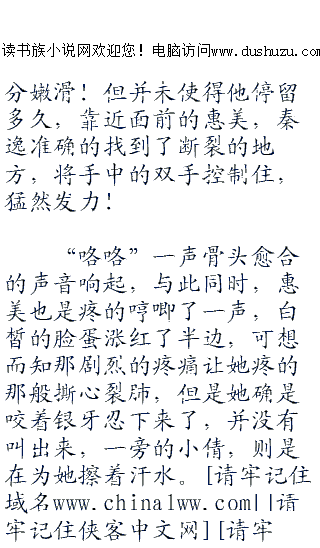 读书族小说网欢迎您！电脑访问www.dushuzu.com
分嫩滑！但并未使得他停留
多久，靠近面前的惠美，秦
逸准确的找到了断裂的地
方，将手中的双手控制住，
猛然发力！
“咯咯”一声骨头愈合
的声音响起，与此同时，惠
美也是疼的哼唧了一声，白
皙的脸蛋涨红了半边，可想
而知那剧烈的疼痛让她疼的
那般撕心裂肺，但是她确是
咬着银牙忍下来了，并没有
叫出来，一旁的小倩，则是
在为她擦着汗水。[请牢记住
域名www.china1ww.com||请
牢记住侠客中文网][请牢